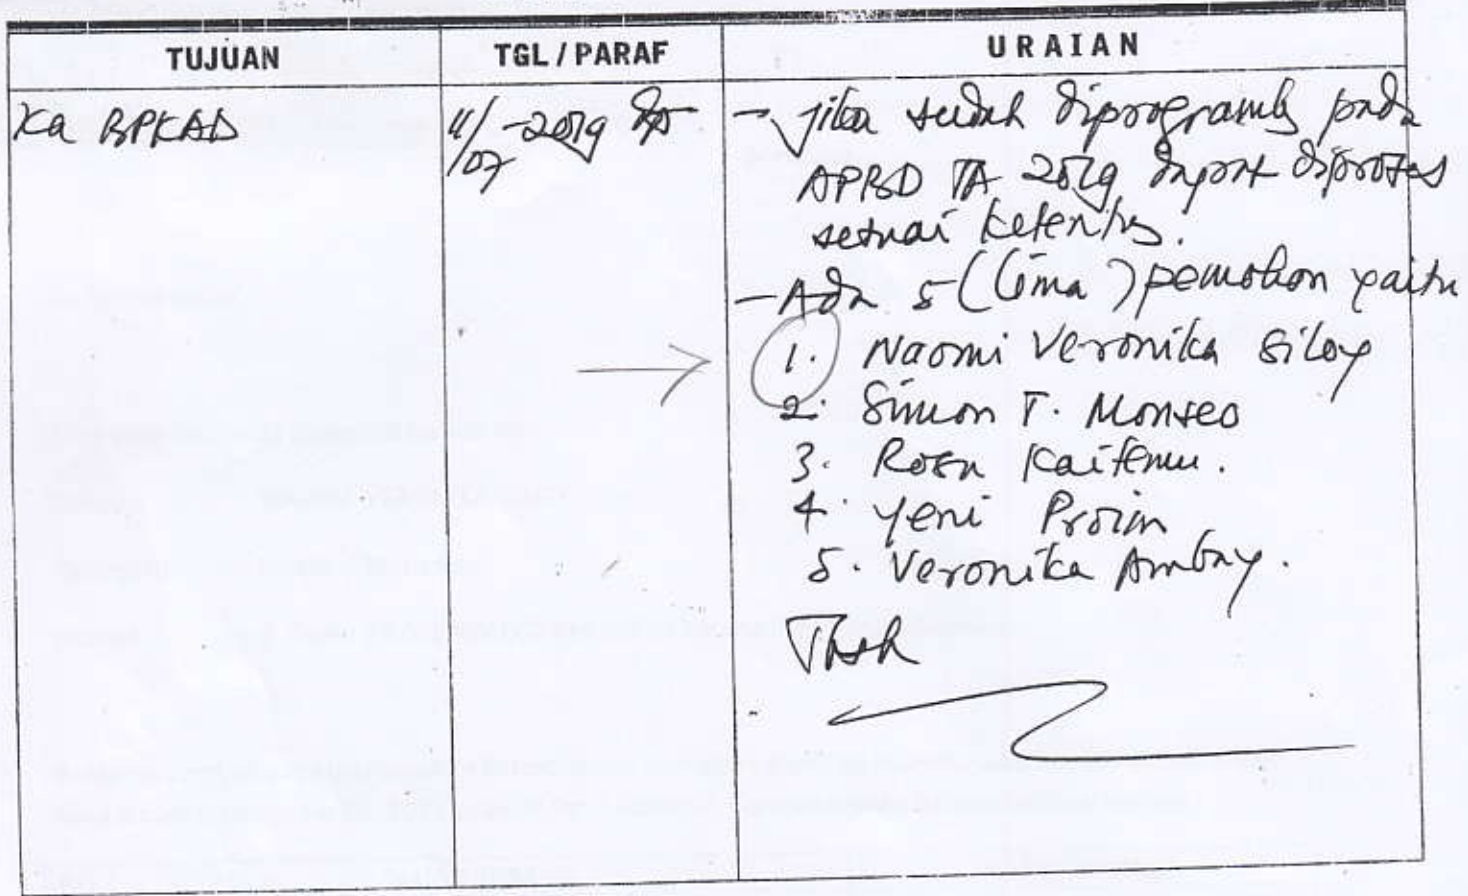 TUJUAN TGL / PARAF URAIAN
Ka BPKAD 11/07 -2019 - jika sudah diprogramkan pada
APBD TA 2019 dapat diproses
sesuai ketentuan.
- Ada 5 (lima) pemohon yaitu
1. Naomi Veronika Siloy
2. Simon T. Monseo
3. Rosa Kaitemu.
4. Yeni Proim
5. Veronika Ambay.